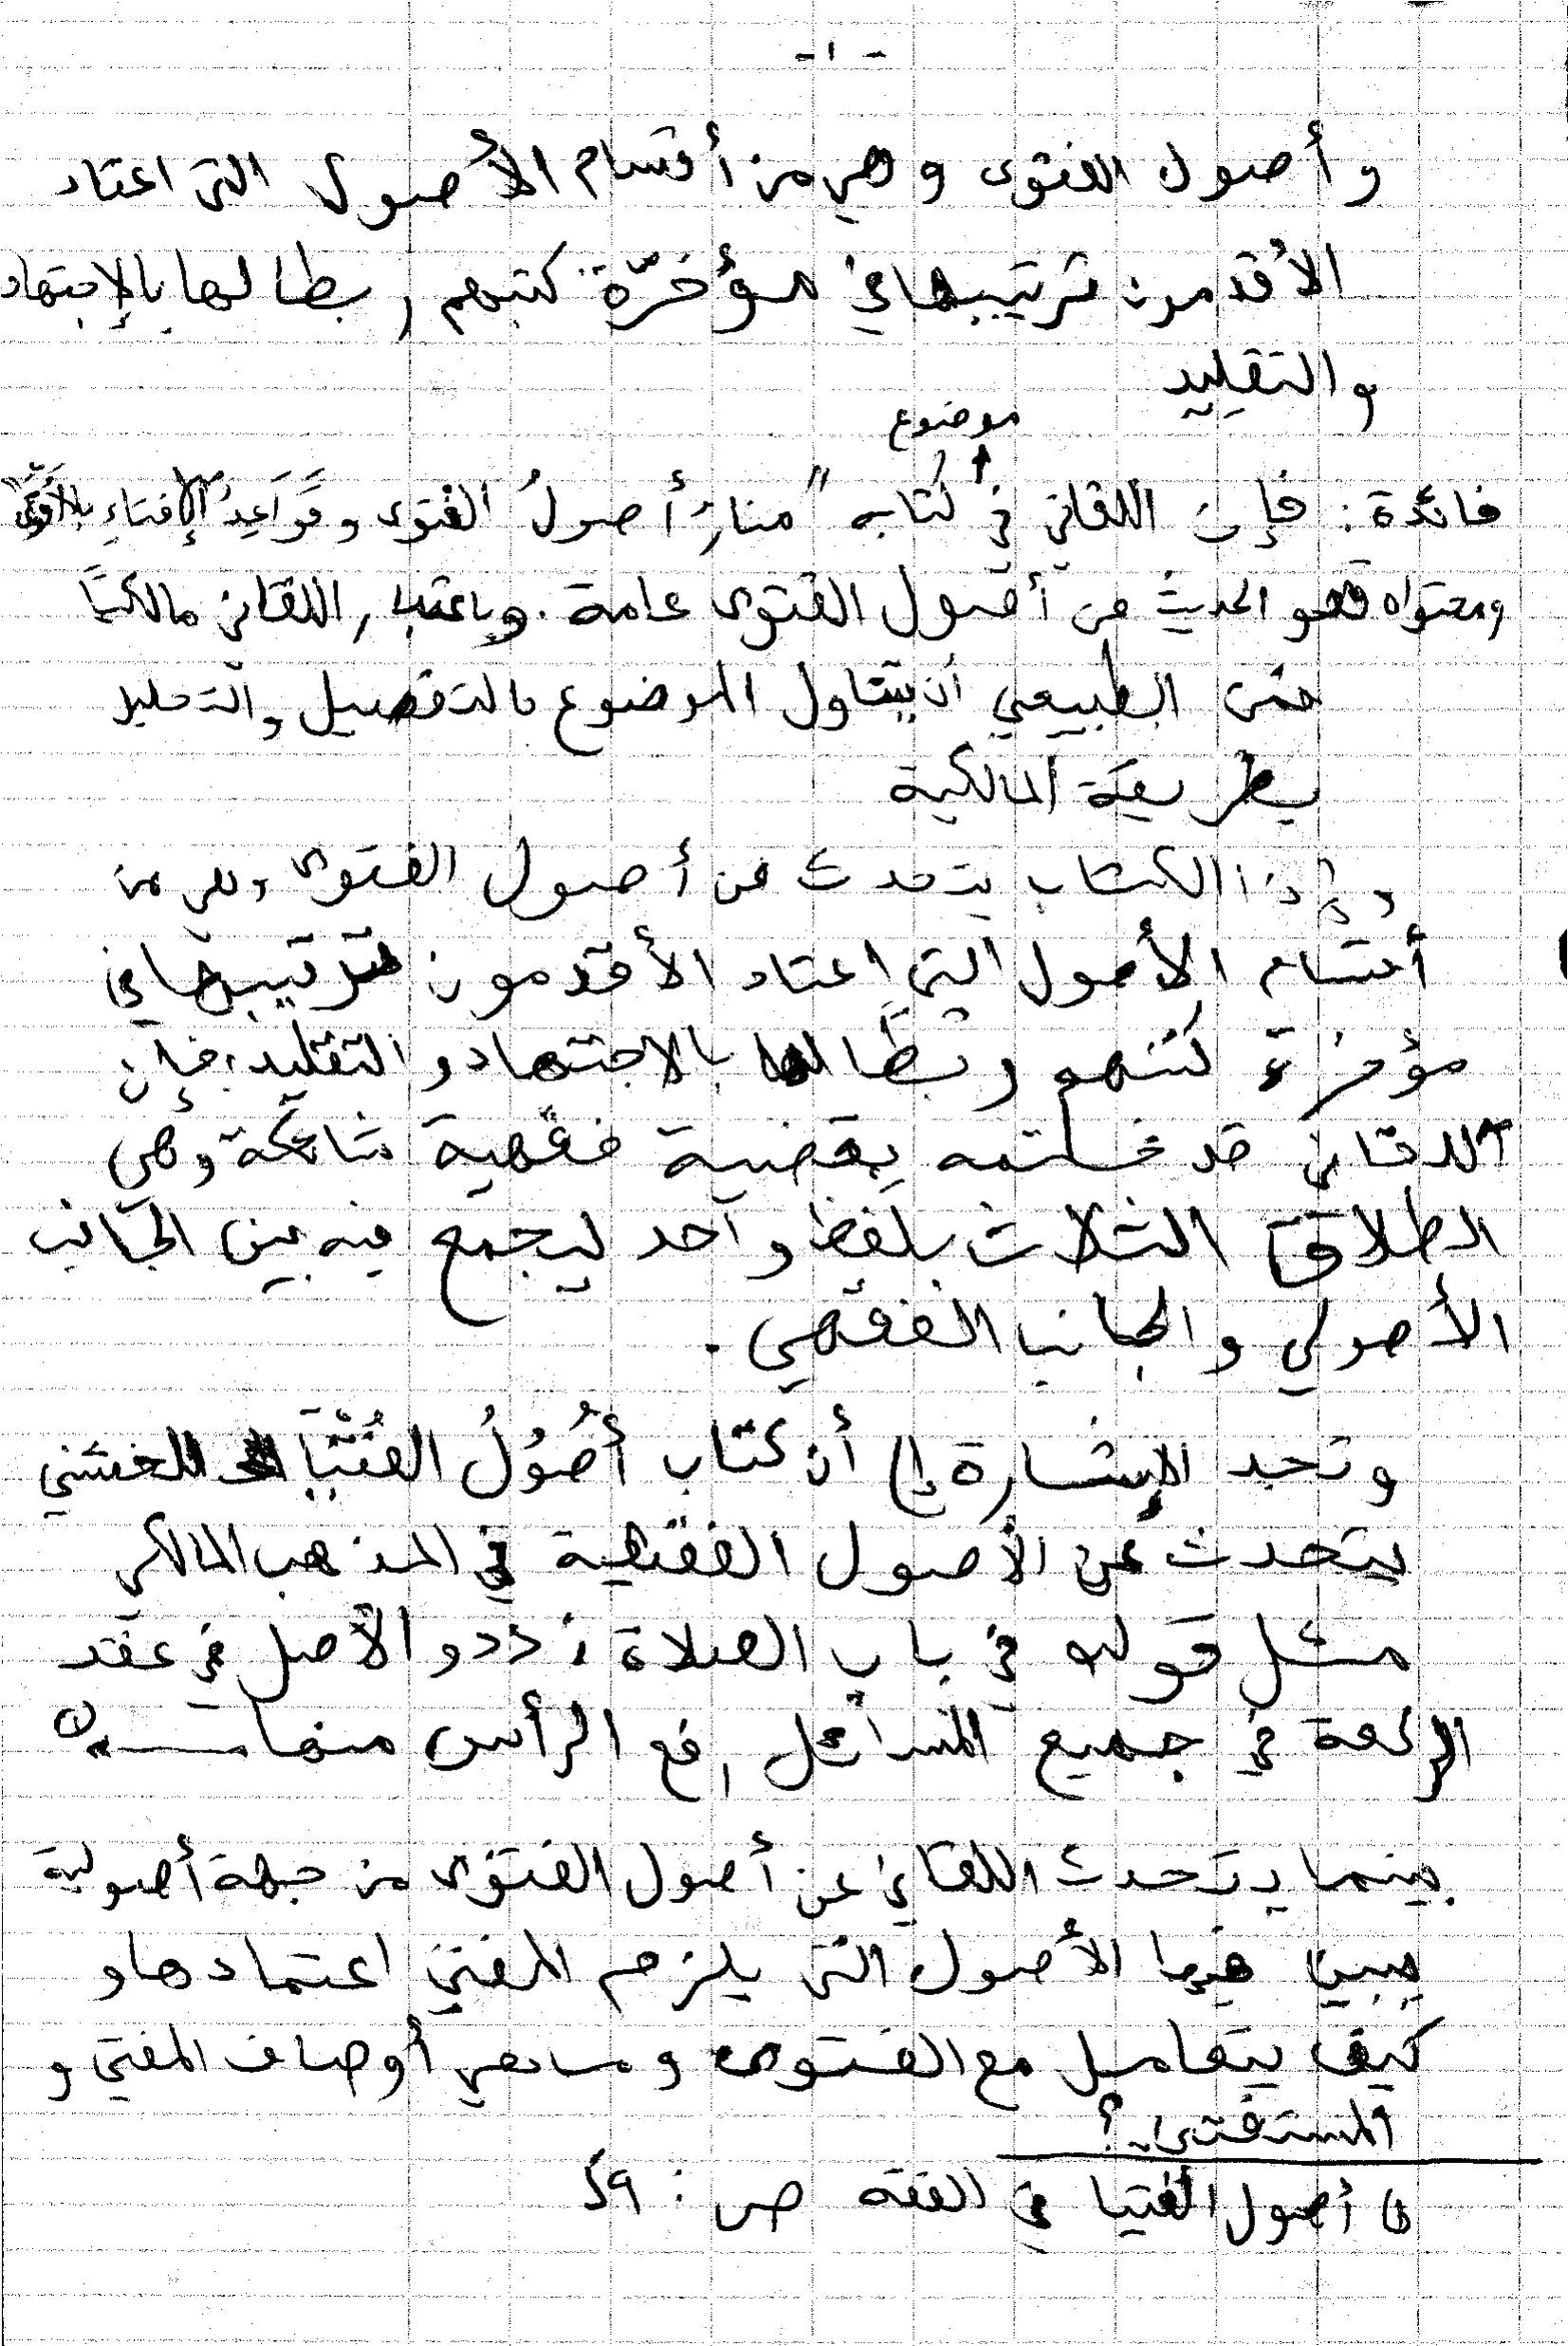 - ١ -
وأصول الفتوى وهي من أقسام الأصول التي اعتاد
الأقدمون ترتيبها في مؤخرّة كتبهم ربطا لها بالإجتهاد
والتقليد
موضوع
فائدة: فإن اللقاني في كتابه "منار أصولُ الفتوى وقَواعِدُ الإفتاءِ بالأقوى"
ومحتواه فهو الحديث عن أصول الفتوى عامة. وباعتبار اللقاني مالكيًا
فمن الطبيعي أن يتناول الموضوع بالتفصيل والتحليل
بطريقة المالكية
وإذا الكتاب يتحدث عن أصول الفتوى وهي من
أقسام الأصول التي اعتاد الأقدمون ترتيبها في
مؤخرة كتبهم ربطا لها بالاجتهاد والتقليد، فإن
اللقاني قد ختمه بقضية فقهية شائكة وهي
الطلاق الثلاث بلفظ واحد ليجمع فيه بين الجانب
الأصولي والجانب الفقهي.
وتجد الإشارة إلى أن كتاب أُصُولُ الفُتْيَا للخشني
يتحدث عن الأصول الفقهية في المذهب المالكي
مثل قوله في باب الصلاة: >>والأصل في عقد
الركعة في جميع المسائل رفع الرأس منها << (١)
بينما يتحدث اللقاني عن أصول الفتوى من جهة أصولية
يبين فيها الأصول التي يلزم المفتي اعتمادها و
كيف يتعامل مع الفتوى وما هي أوصاف المفتي و
المستفتي؟
(١) أصول الفتيا في الفقه ص: 59